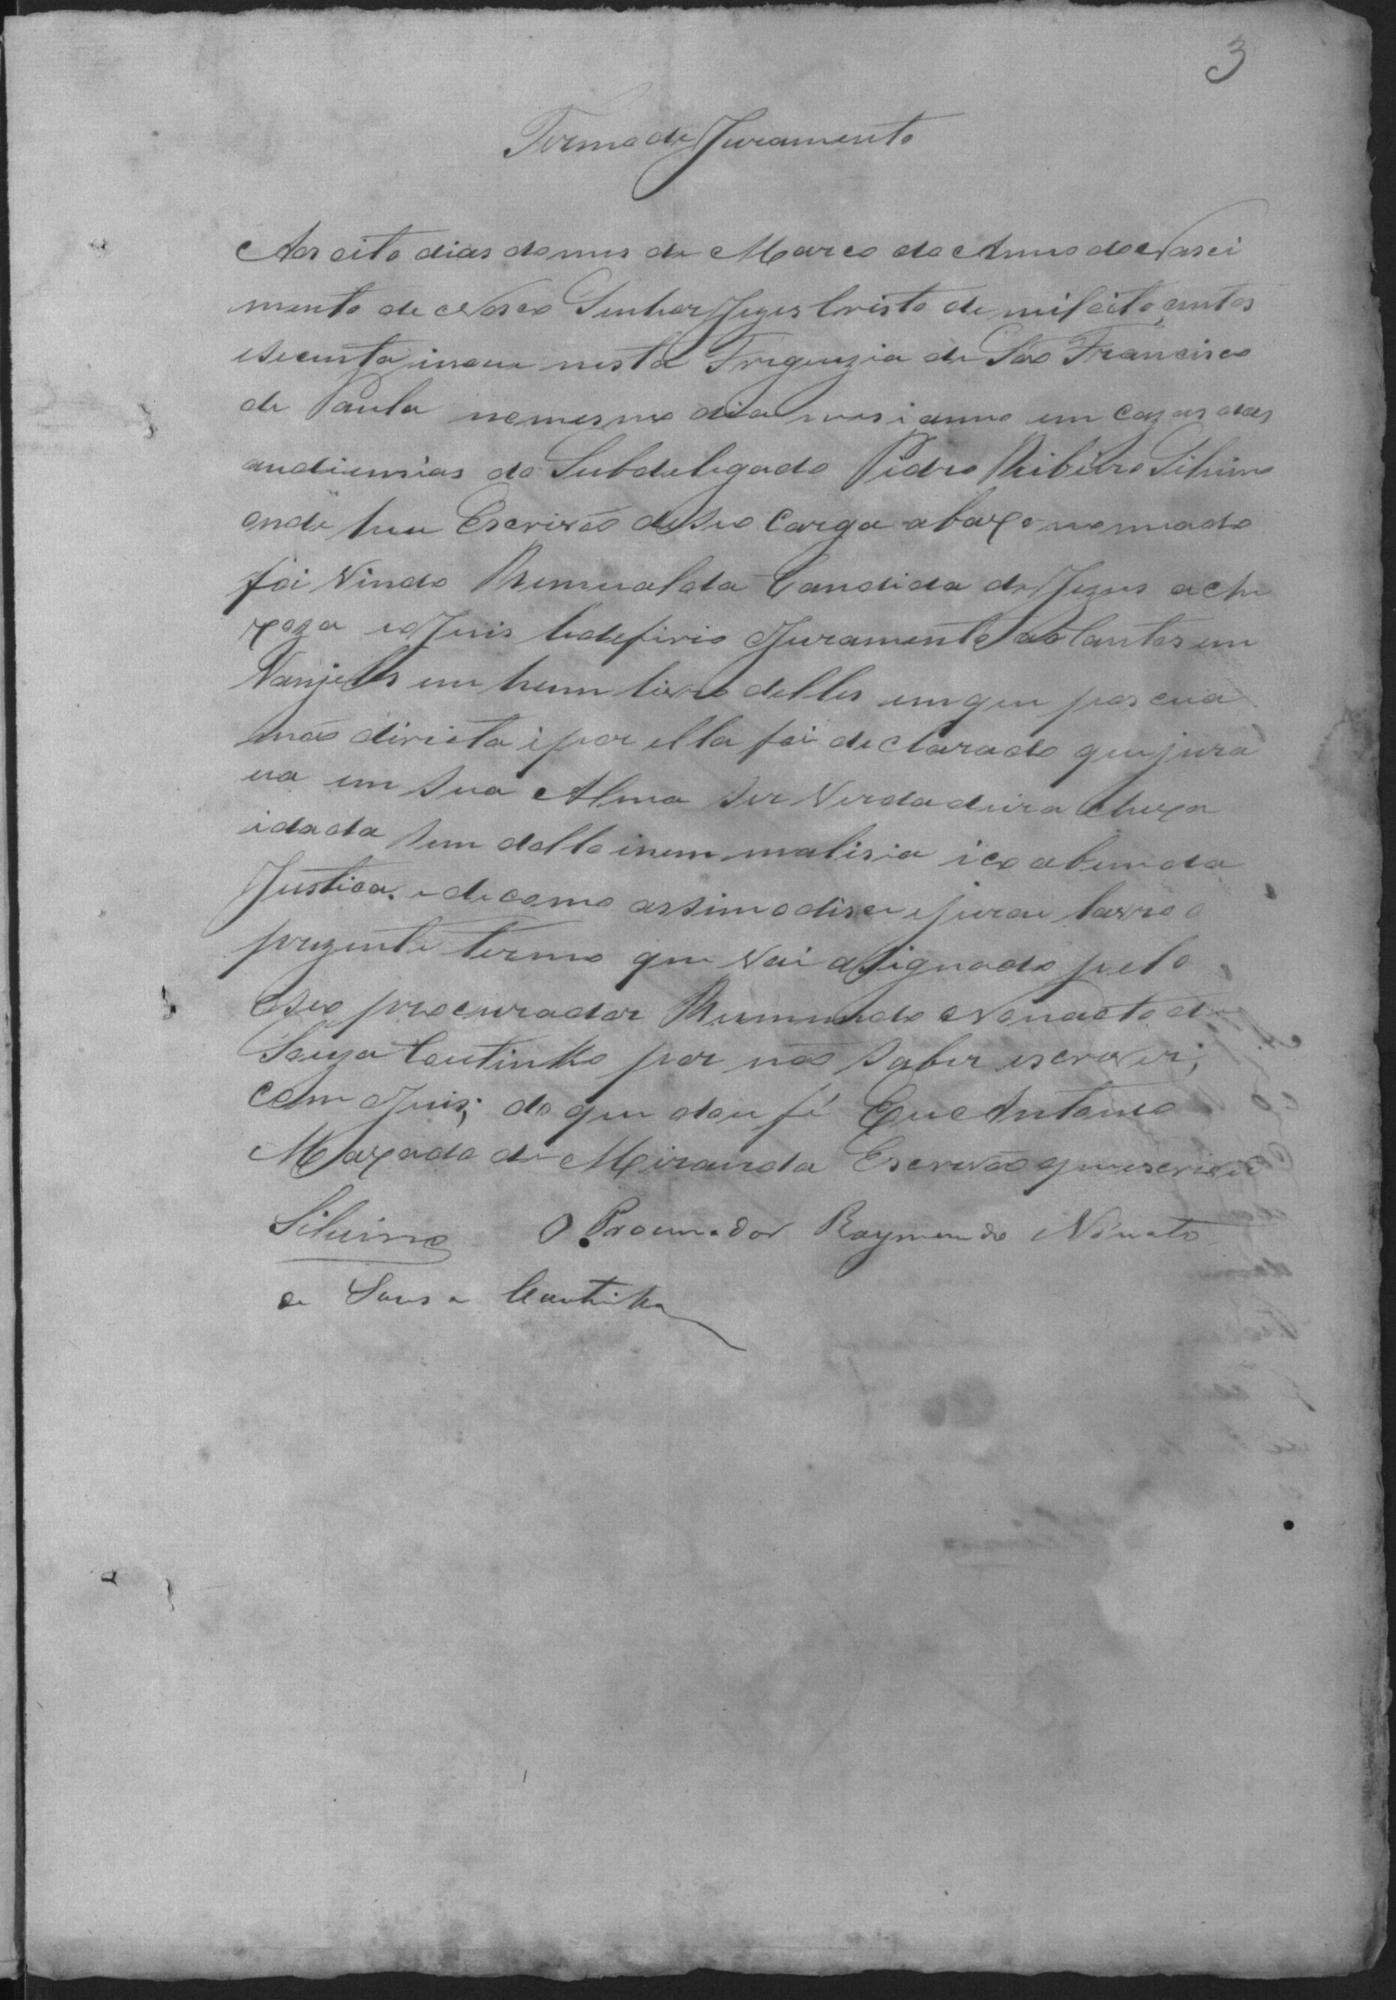 3
Termo de Juramento
Aos oito dias do mes de Marco do Anno do Nasci
mento de Nosco Senhor Jezes Cristo de mil oito centos
esecenta inove nesta Freguezia de São Francisco
de Paula no mesmo dia mes i anno em cazas das
audiensias do Subdelegado Pedro Ribeiro Silvino
onde heu Escrivão de seo Cargo abaxo nomiado
foi Vindo Romualda Candida de Jezus a che
xoza eo Juis le defirio Juramento aos Santos em
Vanjelhos em hum livro delles em que pos cua
mão dirieta i por ella foi declarado que jura
va em sua Alma ser Verdadeira chexa
idada sem dollo inem malisia i co a bem da
Justica. e de como assim o dise e jurou lavro o
prezente termo que Vai asignado pelo
seo procurador Rumundo Nonacto de
Souza Coutinho por não saber escrever;
com Juis; do que dou fé Eu Antonio
Maxado de Miranda Escrivão que escrivi
Silvino O Procurador Raymundo Nonato
de Sousa Coutinho